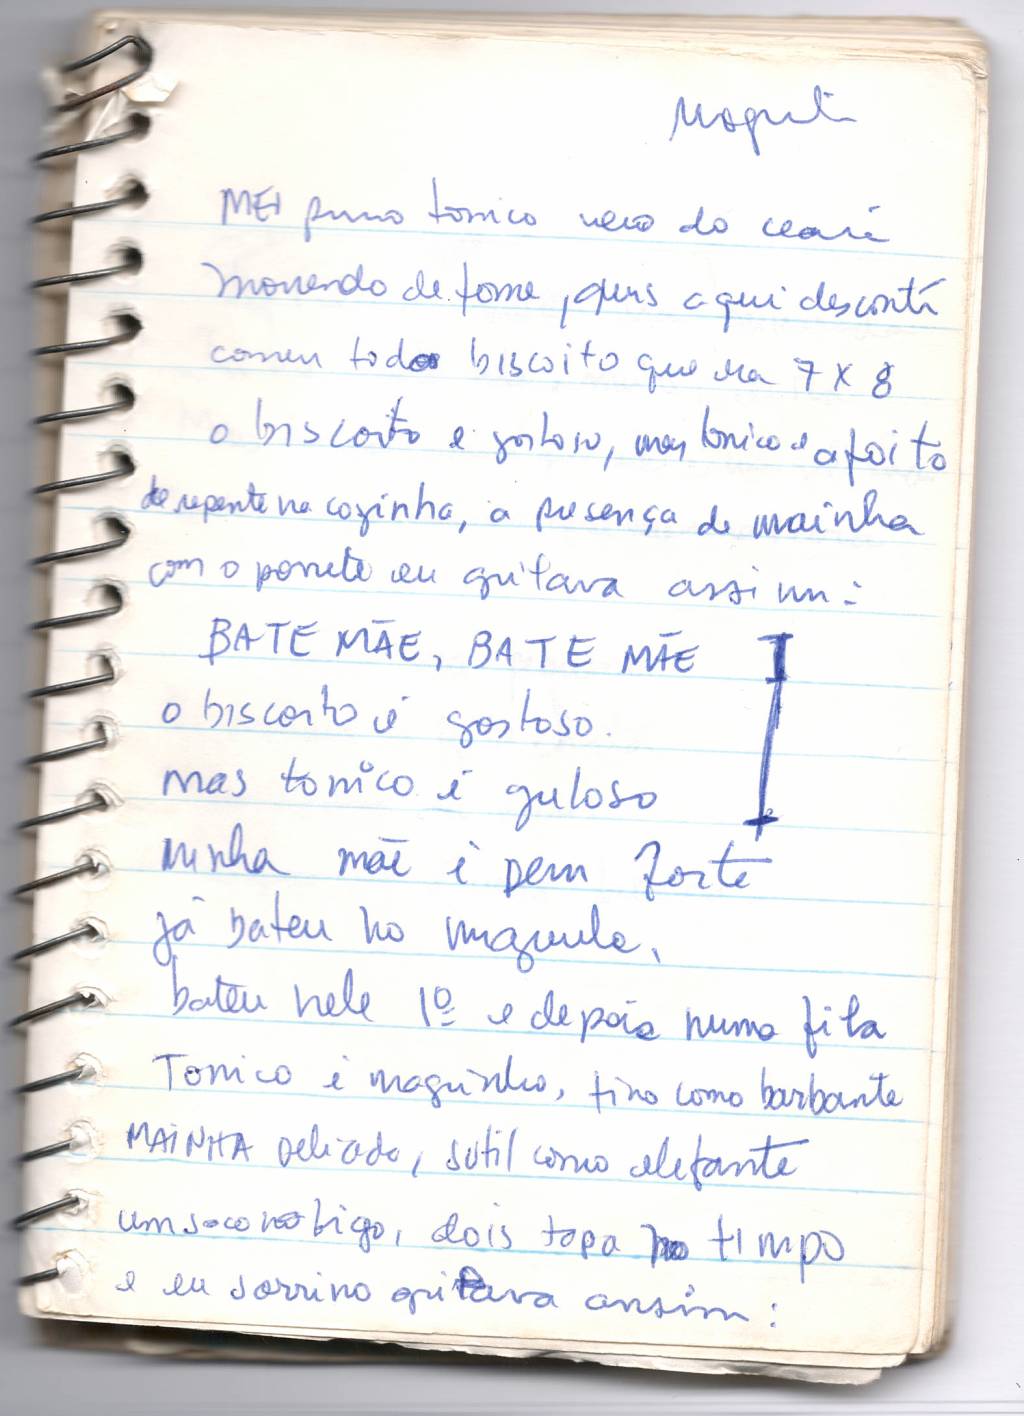 MEU primo tonico veio do ceará
morrendo de fome, quis aqui descontá
comeu todo biscoito que era 7 x 8
o biscoito é gostoso, mas tonico é afoito
de repente na cozinha, a presença de mainha
com o porrete eu gritava assim:
BATE MÃE, BATE MÃE
o biscoito é gostoso.
mas tonico é guloso
minha mãe é bem forte
já bateu no maguila,
bateu nele 1º e depois numa fila
Tonico é magrinho, fino como barbante
MAINHA delicada, sutil como elefante
um soco no bigo, dois tapa no timpo
e eu sorrino gritava ansim: